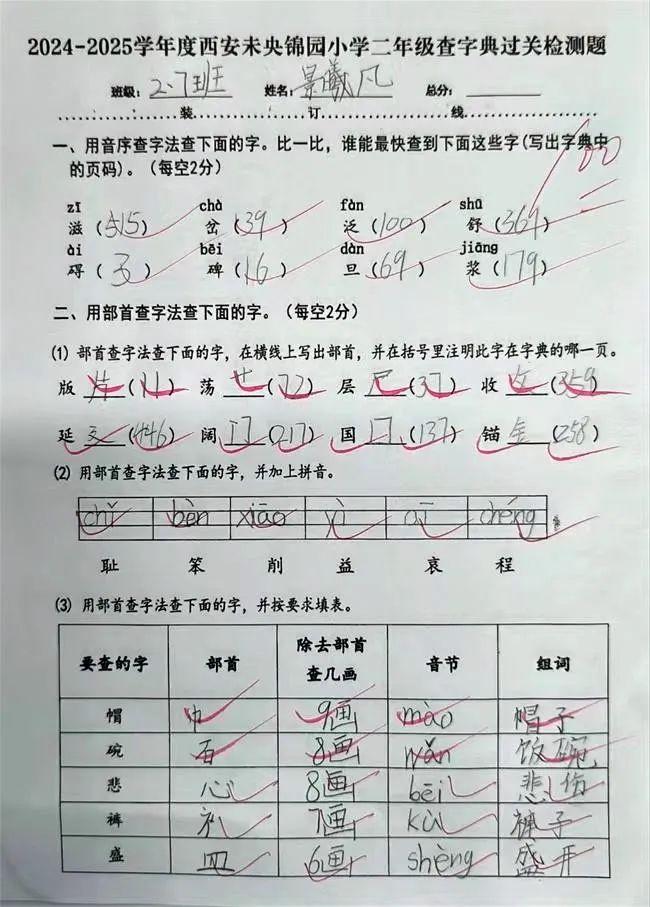 2024-2025学年度西安未央锦园小学二年级查字典过关检测题
班级：2.7班 姓名：景曦凡 总分：
装 订 线
一、用音序查字法查下面的字。比一比，谁能最快查到下面这些字(写出字典中
的页码)。(每空2分)
100
zī chà fàn shū
滋(515) 岔(39) 泛(100) 舒(369)
ài bēi dàn jiāng
碍(3) 碑(16) 旦(69) 浆(179)
二、用部首查字法查下面的字。(每空2分)
(1) 部首查字法查下面的字，在横线上写出部首，并在括号里注明此字在字典的哪一页。
版 片 (11) 荡 艹 (72) 层 尸 (37) 收 攵 (359)
延 廴 (446) 阔 门 (217) 国 囗 (137) 锚 金 (258)
(2) 用部首查字法查下面的字，并加上拼音。
chǐ bèn xiāo yì āi chéng
耻 笨 削 益 哀 程
(3) 用部首查字法查下面的字，并按要求填表。
要查的字 部首 除去部首查几画 音节 组词
帽 巾 9画 mào 帽子
碗 石 8画 wǎn 饭碗
悲 心 8画 bēi 悲伤
裤 衤 7画 kù 裤子
盛 皿 6画 shèng 盛开